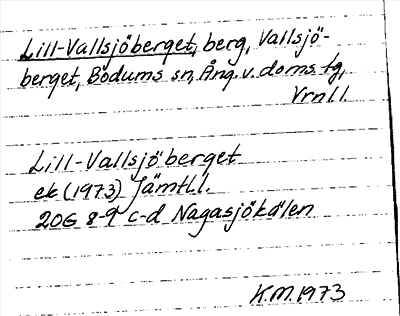 Lill-Vallsjöberget, berg, Vallsjö-
berget, Bodums sn, Ång. v. doms. tg,
Vrnl l.
Lill-Vallsjöberget
ek (1973) Jämtl.l.
20G 8-9 c-d Nagasjökälen
K.M. 1973